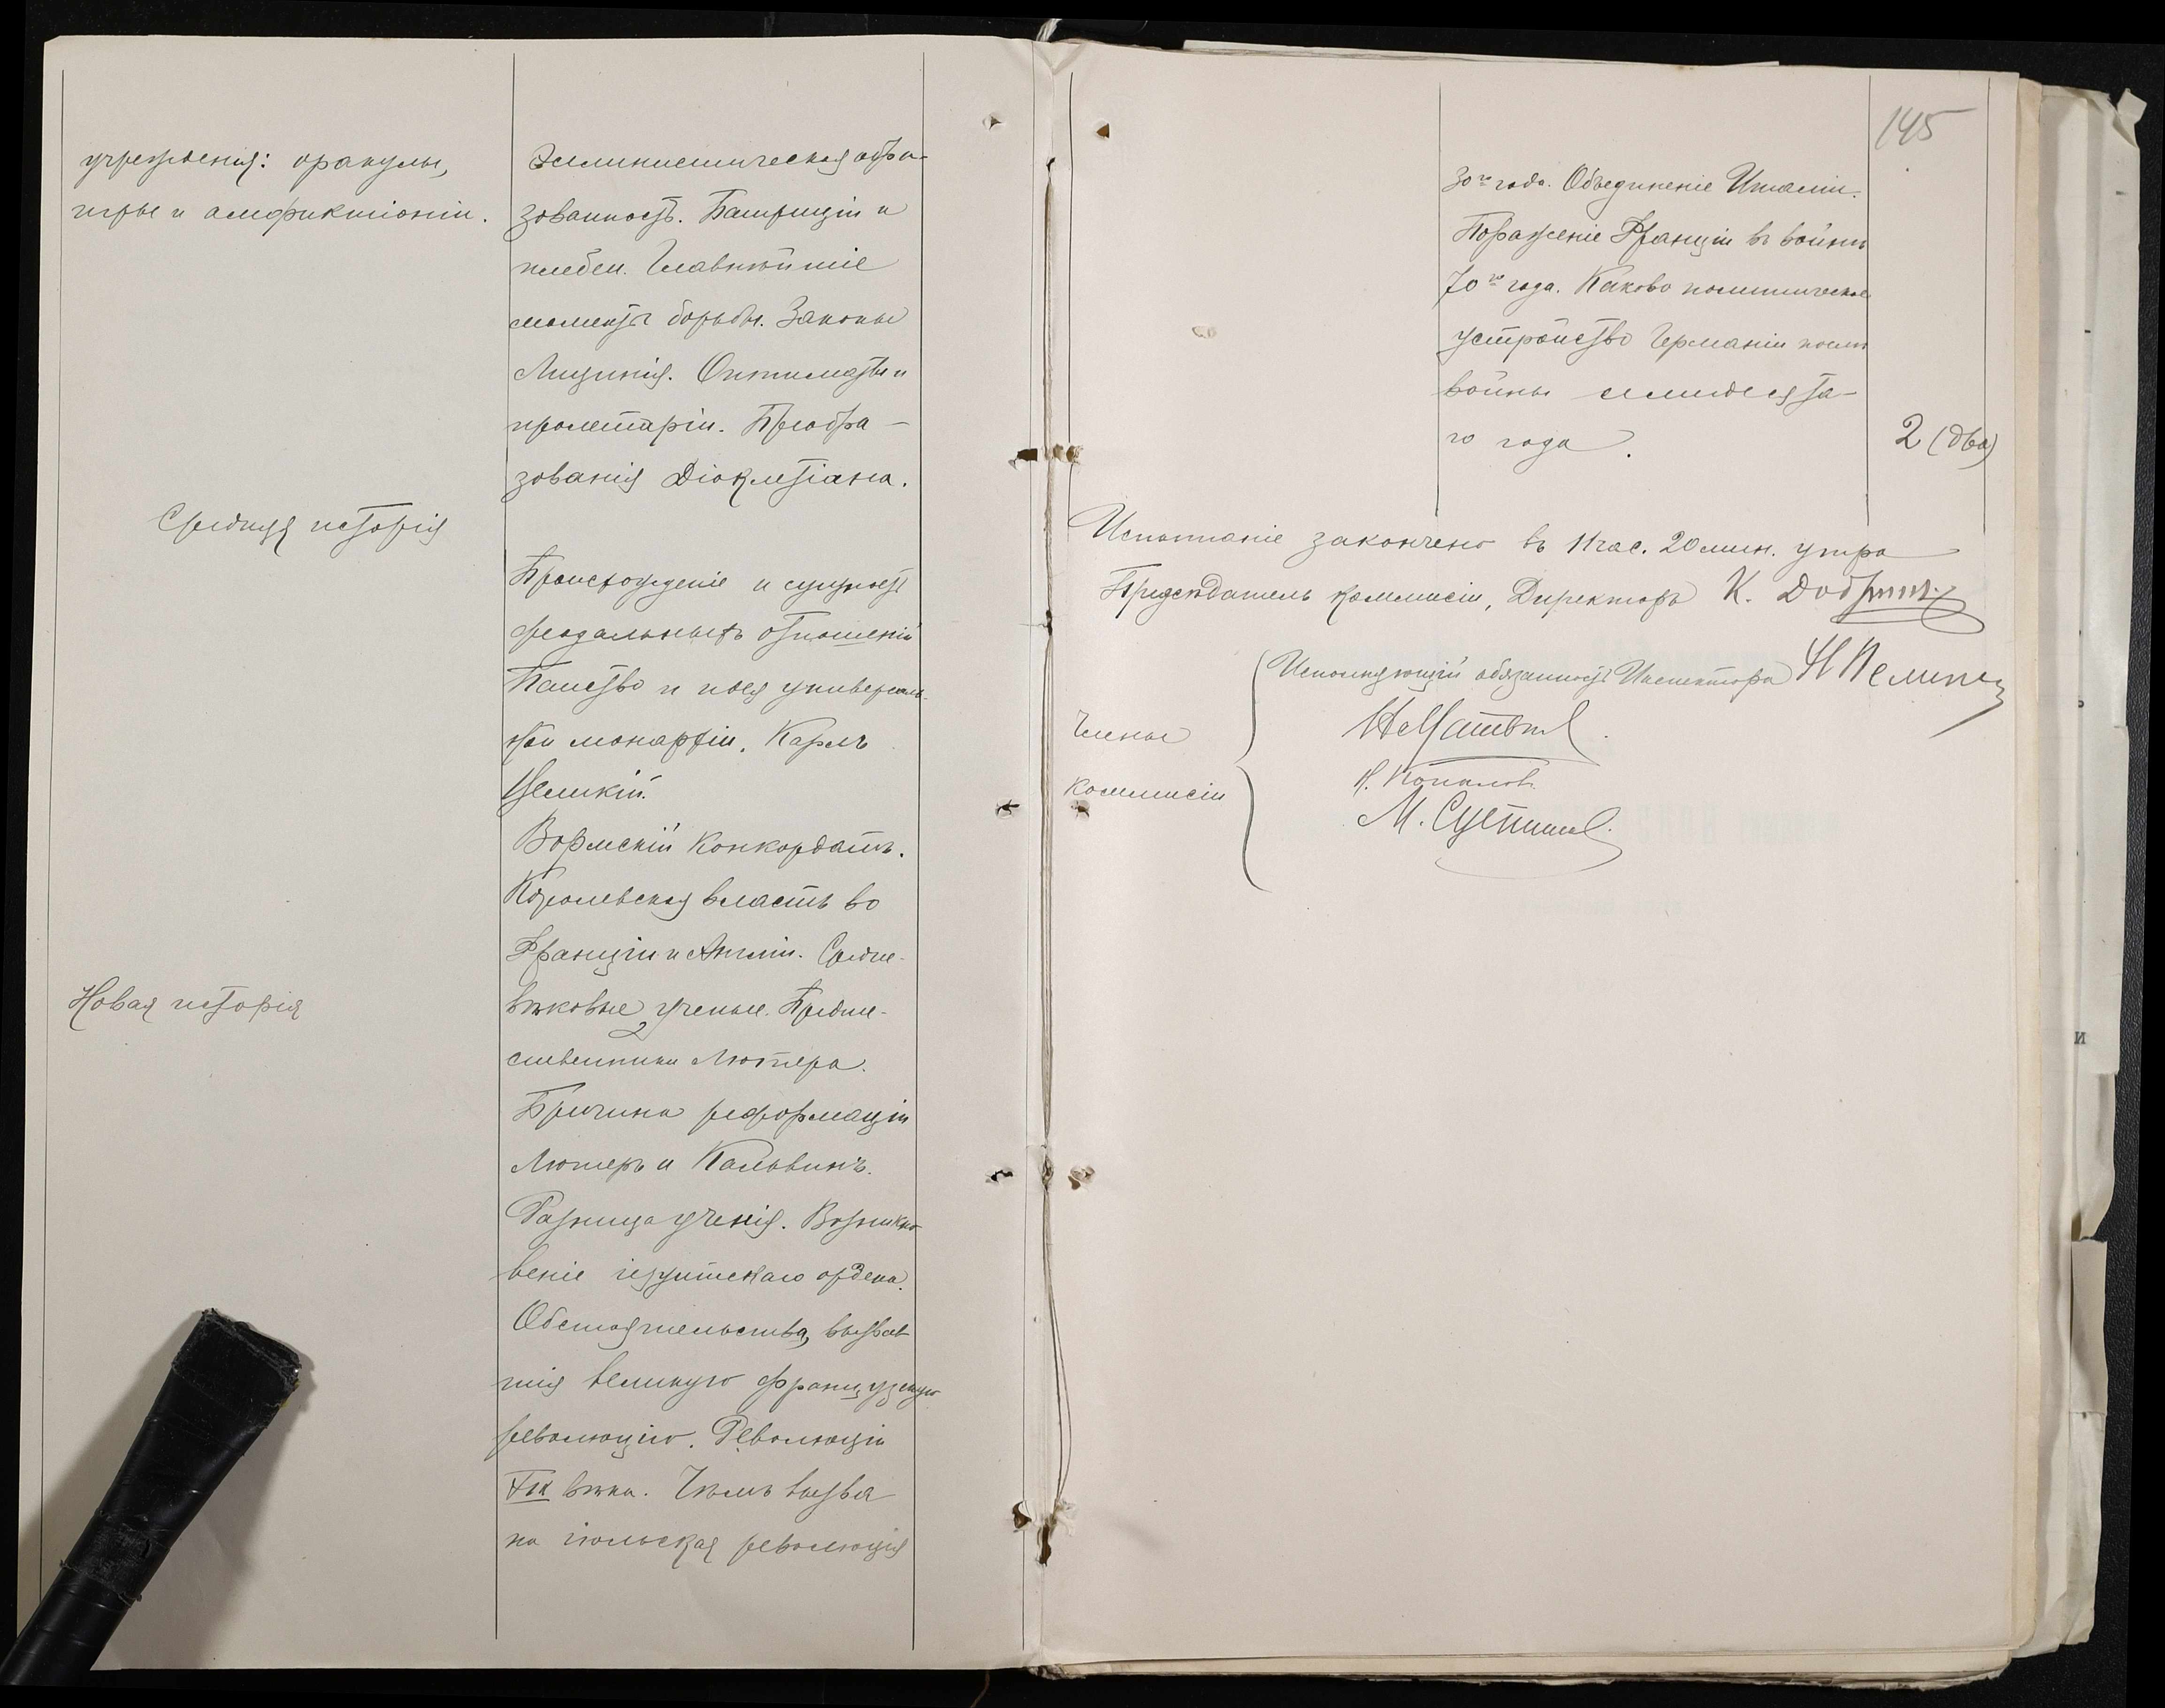 учрежденія: оракулы,
игры и амфиктіоніи.
Средняя исторія
Новая исторія
Эллинистическая обра-
зованность. Патриціи и
плебеи. Главнѣйшіе
моменты борьбы. Законы
Лицинія. Оптиматы и
пролетаріи. Преобра-
зованія Діоклетіана.
Происхожденіе и сущность
феодальныхъ отношеній
Папство и идея универсаль-
ной монархіи. Карлъ
Великій.
Вормскій конкордатъ.
Королевская власть во
Франціи и Англіи. Средне-
вѣковые ученые. Предше-
ственники Лютера.
Причина реформаціи
Лютеръ и Кальвинъ.
Разница ученія. Возникно-
веніе іезуитскаго ордена.
Обстоятельства, вызвав-
шія великую французскую
революцію. Революціи
XIX вѣка. Чѣмъ вызва
на іюльская революція
145
30го года. Объединеніе Италіи.
Пораженіе Франціи въ войнѣ
70го года. Каково политическое
устройство Германіи послѣ
войны семидесята-
го года.
2 (два)
Испытаніе закончено въ 11 час. 20 мин. утра
Предсѣдатель коммисіи, Директоръ К.
Исполняющій обязанность Инспектора
Члены
коммисіи
М.